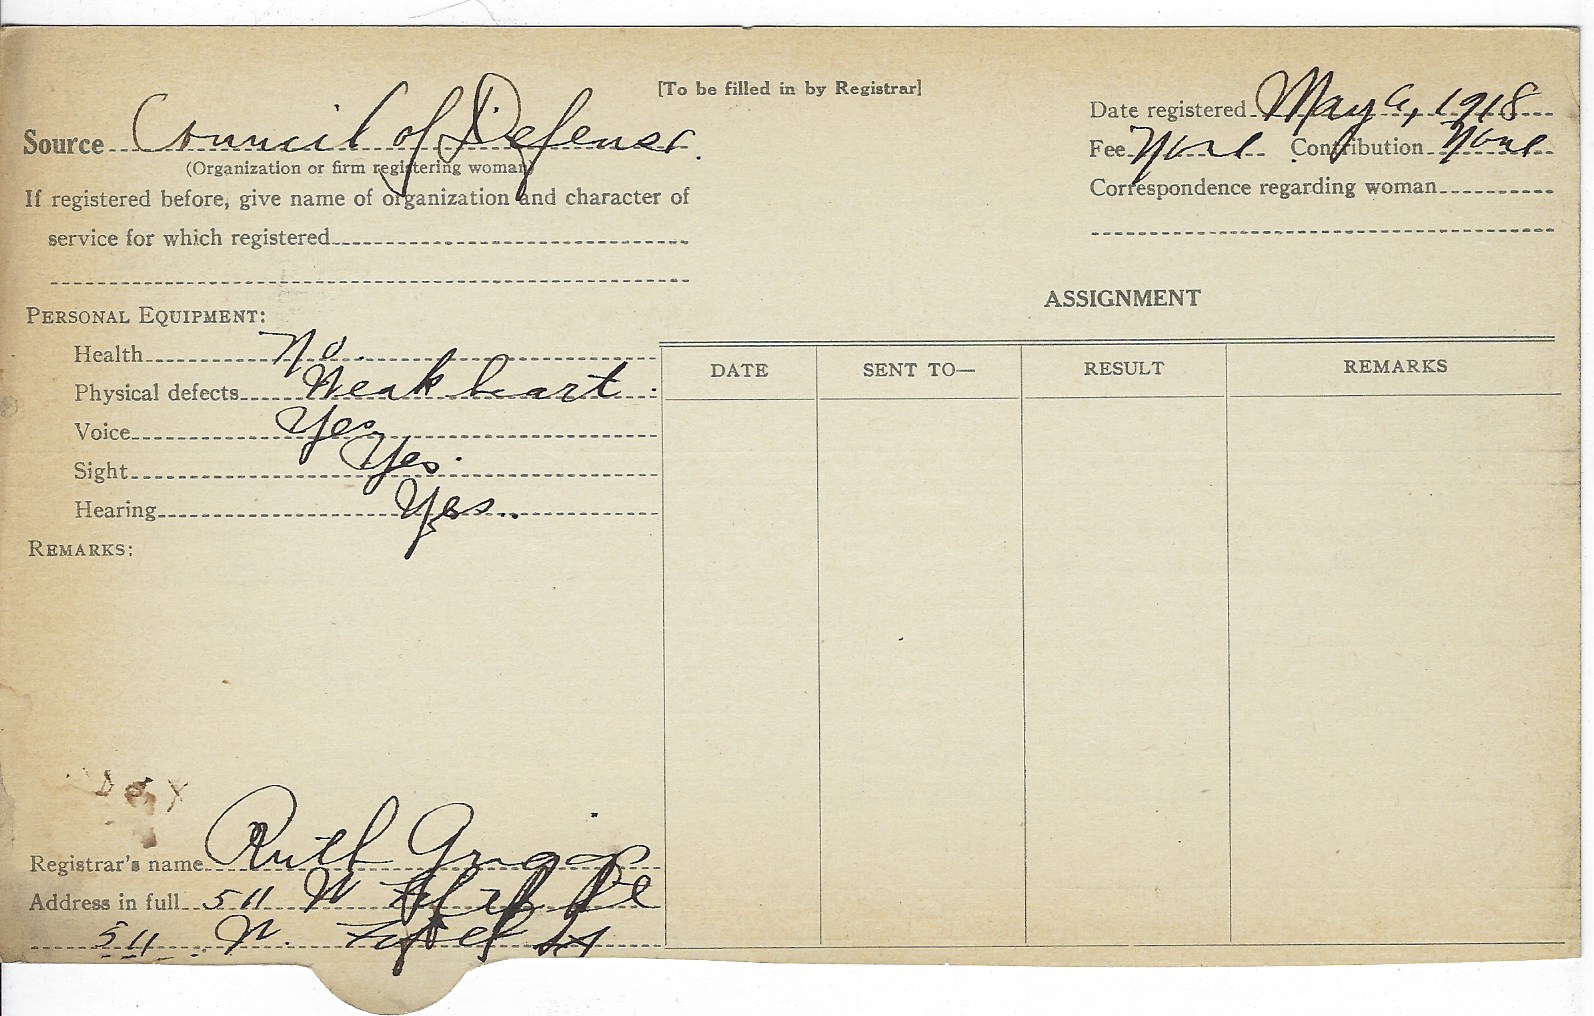 [To be filled in by Registrar]
Source Council of Defense.
(Organization or firm registering woman)
If registered before, give name of organization and character of
service for which registered
Date registered May 6, 1918
Fee None Contribution None
Correspondence regarding woman
PERSONAL EQUIPMENT:
Health No.
Physical defects Weak heart.
Voice Yes
Sight Yes.
Hearing Yes..
REMARKS:
ASSIGNMENT
DATE SENT TO— RESULT REMARKS
Registrar's name Ruth Griggs
Address in full 511 W
511 W. St